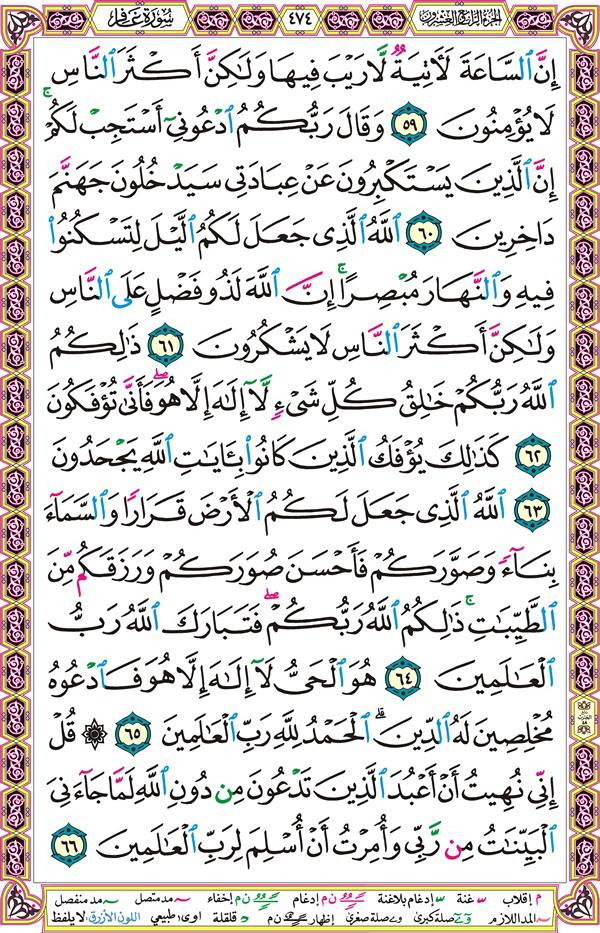 سورة غافر
٤٧٤
الجزء الرابع والعشرون
إِنَّ ٱلسَّاعَةَ لَـَٔاتِيَةٌ لَّا رَيْبَ فِيهَا وَلَـٰكِنَّ أَكْثَرَ ٱلنَّاسِ
لَا يُؤْمِنُونَ ٥٩ وَقَالَ رَبُّكُمُ ٱدْعُونِىٓ أَسْتَجِبْ لَكُمْ ۚ
إِنَّ ٱلَّذِينَ يَسْتَكْبِرُونَ عَنْ عِبَادَتِى سَيَدْخُلُونَ جَهَنَّمَ
دَاخِرِينَ ٦٠ ٱللَّهُ ٱلَّذِى جَعَلَ لَكُمُ ٱلَّيْلَ لِتَسْكُنُوا۟
فِيهِ وَٱلنَّهَارَ مُبْصِرًا ۚ إِنَّ ٱللَّهَ لَذُو فَضْلٍ عَلَى ٱلنَّاسِ
وَلَـٰكِنَّ أَكْثَرَ ٱلنَّاسِ لَا يَشْكُرُونَ ٦١ ذَٰلِكُمُ
ٱللَّهُ رَبُّكُمْ خَـٰلِقُ كُلِّ شَىْءٍ لَّآ إِلَـٰهَ إِلَّا هُوَ ۖ فَأَنَّىٰ تُؤْفَكُونَ
٦٢ كَذَٰلِكَ يُؤْفَكُ ٱلَّذِينَ كَانُوا۟ بِـَٔايَـٰتِ ٱللَّهِ يَجْحَدُونَ
٦٣ ٱللَّهُ ٱلَّذِى جَعَلَ لَكُمُ ٱلْأَرْضَ قَرَارًا وَٱلسَّمَآءَ
بِنَآءً وَصَوَّرَكُمْ فَأَحْسَنَ صُوَرَكُمْ وَرَزَقَكُم مِّنَ
ٱلطَّيِّبَـٰتِ ۚ ذَٰلِكُمُ ٱللَّهُ رَبُّكُمْ ۖ فَتَبَارَكَ ٱللَّهُ رَبُّ
ٱلْعَـٰلَمِينَ ٦٤ هُوَ ٱلْحَىُّ لَآ إِلَـٰهَ إِلَّا هُوَ فَٱدْعُوهُ
مُخْلِصِينَ لَهُ ٱلدِّينَ ۗ ٱلْحَمْدُ لِلَّهِ رَبِّ ٱلْعَـٰلَمِينَ ٦٥ ۞ قُلْ
إِنِّى نُهِيتُ أَنْ أَعْبُدَ ٱلَّذِينَ تَدْعُونَ مِن دُونِ ٱللَّهِ لَمَّا جَآءَنِىَ
ٱلْبَيِّنَـٰتُ مِن رَّبِّى وَأُمِرْتُ أَنْ أُسْلِمَ لِرَبِّ ٱلْعَـٰلَمِينَ ٦٦
م إقلاب س غنة س إدغام بلا غنة ن م إدغام ن م إخفاء ~ مد متصل ~ مد منفصل
~ المد اللازم و ے صلة كبرى و ے صلة صغرى إظهار ن م ه قلقلة اوى؛ طبيعي اللون الأزرق: لا يلفظ